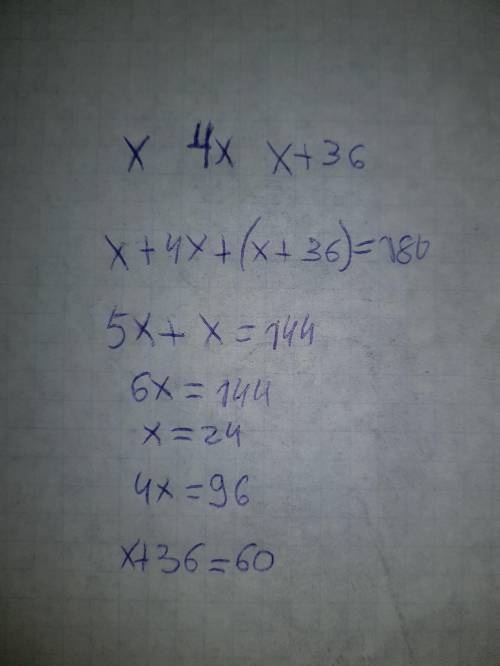 x 4x x+36
x+4x+(x+36)=180
5x+x=144
6x=144
x=24
4x=96
x+36=60